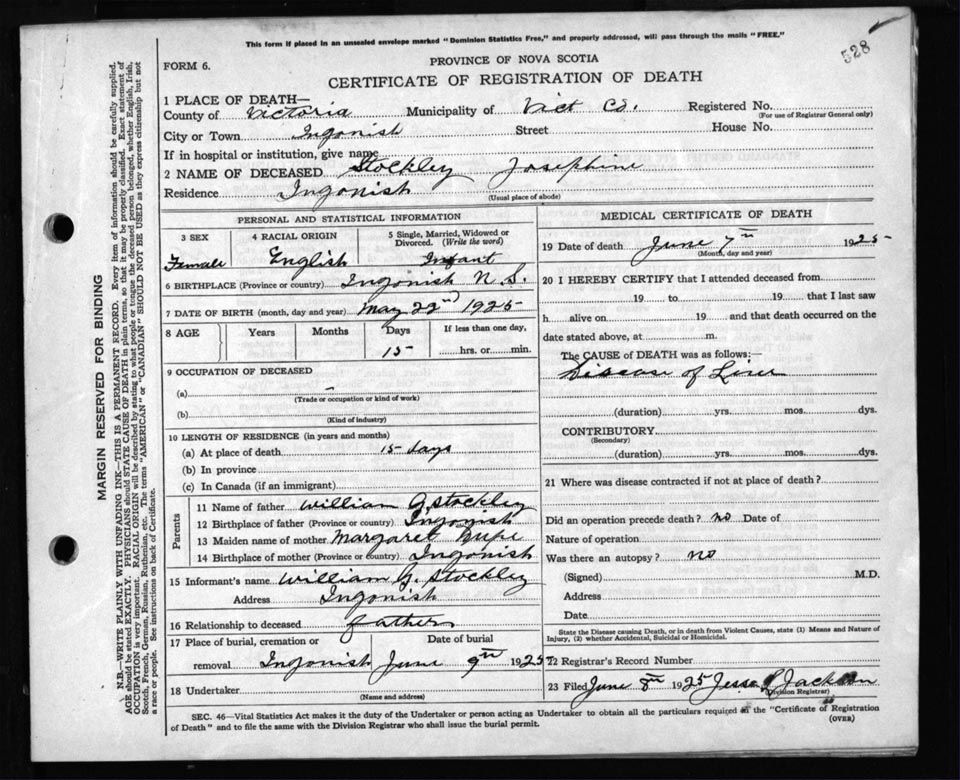 This form if placed in an unsealed envelope marked "Dominion Statistics Free," and properly addressed, will pass through the mails "FREE."
528
FORM 6.
PROVINCE OF NOVA SCOTIA
CERTIFICATE OF REGISTRATION OF DEATH
1 PLACE OF DEATH—
County of Victoria Municipality of Vict Co. Registered No.
(For use of Registrar General only)
City or Town Ingonish Street House No.
If in hospital or institution, give name
2 NAME OF DECEASED Stockley Josephine
Residence Ingonish
(Usual place of abode)
PERSONAL AND STATISTICAL INFORMATION
3 SEX 4 RACIAL ORIGIN 5 Single, Married, Widowed or Divorced. (Write the word)
Female English Infant
6 BIRTHPLACE (Province or country) Ingonish N. S.
7 DATE OF BIRTH (month, day and year) May 22nd 1925
8 AGE Years Months Days If less than one day,
15 hrs. or min.
9 OCCUPATION OF DECEASED
(a) –
(Trade or occupation or kind of work)
(b)
(Kind of industry)
10 LENGTH OF RESIDENCE (in years and months)
(a) At place of death 15 days
(b) In province
(c) In Canada (if an immigrant)
Parents
11 Name of father William G. Stockley
12 Birthplace of father (Province or country) Ingonish
13 Maiden name of mother Margaret
14 Birthplace of mother (Province or country) Ingonish
15 Informant's name William G. Stockley
Address Ingonish
16 Relationship to deceased father
17 Place of burial, cremation or removal Ingonish Date of burial June 9th 1925
18 Undertaker
(Name and address)
MEDICAL CERTIFICATE OF DEATH
19 Date of death June 7th 1925
(Month, day and year)
20 I HEREBY CERTIFY that I attended deceased from
19 to 19 that I last saw
h alive on 19 and that death occurred on the
date stated above, at m.
The CAUSE of DEATH was as follows:—
Disease of Liver
(duration) yrs. mos. dys.
CONTRIBUTORY
(Secondary)
(duration) yrs. mos. dys.
21 Where was disease contracted if not at place of death?
Did an operation precede death? no Date of
Nature of operation
Was there an autopsy? no
(Signed) M.D.
Address
Date
State the Disease causing Death, or in death from Violent Causes, state (1) Means and Nature of
Injury, (2) whether Accidental, Suicidal or Homicidal.
22 Registrar's Record Number
23 Filed June 8th 1925 Jesse Jackson
Division Registrar)
SEC. 46—Vital Statistics Act makes it the duty of the Undertaker or person acting as Undertaker to obtain all the particulars required in the "Certificate of Registration
of Death" and to file the same with the Division Registrar who shall issue the burial permit.
(OVER)
MARGIN RESERVED FOR BINDING
N.B.—WRITE PLAINLY WITH UNFADING INK—THIS IS A PERMANENT RECORD. Every item of information should be carefully supplied.
AGE should be stated EXACTLY. PHYSICIANS should STATE CAUSE OF DEATH in plain terms, so that it may be properly classified. Exact statement of
OCCUPATION is very important. RACIAL ORIGIN will be described by stating to what people or tongue the deceased person belonged, whether English, Irish,
Scotch, French, German, Russian, Ruthenian, etc. The terms "AMERICAN" or "CANADIAN" SHOULD NOT BE USED as they express citizenship but not
a race or people. See instructions on back of Certificate.